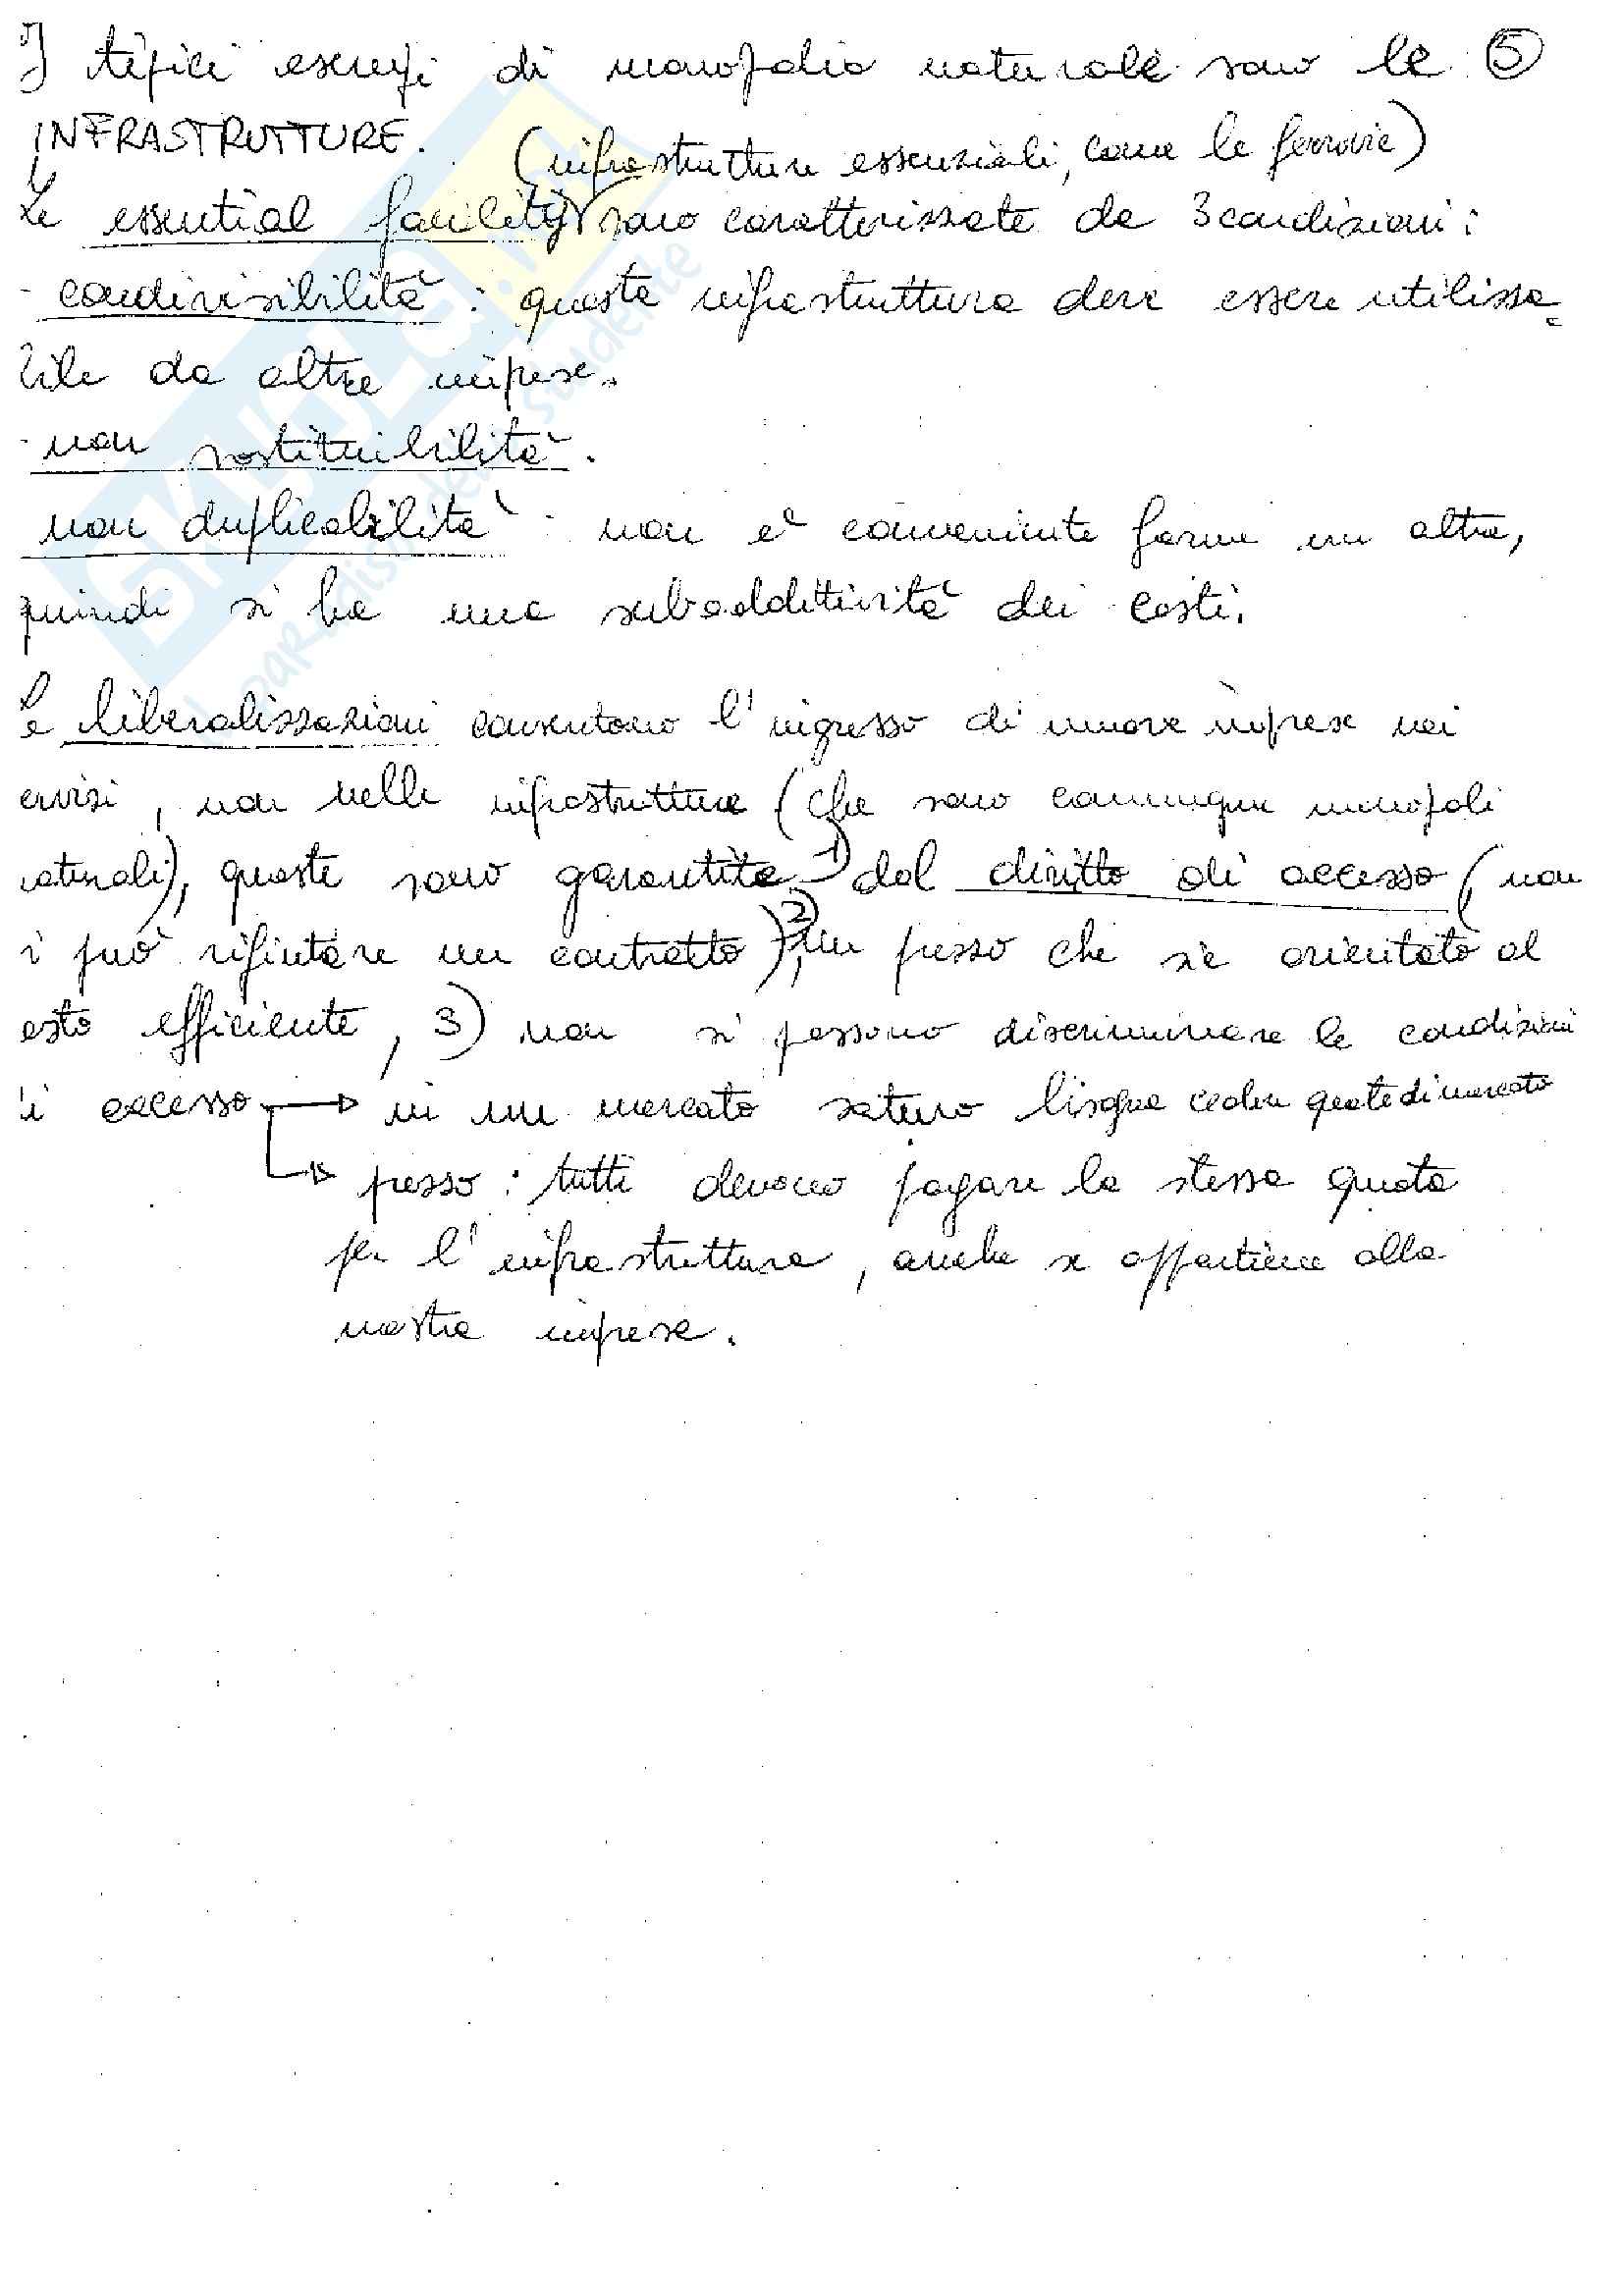 I tipici esempi di monopolio naturale sono le 5
INFRASTRUTTURE.
(infrastrutture essenziali, come le ferrovie)
Le essential facility sono caratterizzate da 3 condizioni:
- condivisibilità: questa infrastruttura deve essere utilizza
bile da altre imprese.
- non sostituibilità.
non duplicabilità: non è conveniente farne un altra,
quindi si ha una subaddittività dei costi.
Le liberalizzazioni consentono l'ingresso di nuove imprese nei
ervizi, non nelle infrastrutture (che sono comunque monopoli
naturali), queste sono garantite 1) dal diritto di accesso (non
i può rifiutare un contratto), 2) un prezzo che sia orientato al
osto efficiente, 3) non si possono discriminare le condizioni
di accesso → in un mercato saturo bisogna cedere quote di mercato
→ prezzo: tutti devono pagare la stessa quota
per l'infrastruttura, anche se appartiene alla
nostra impresa.